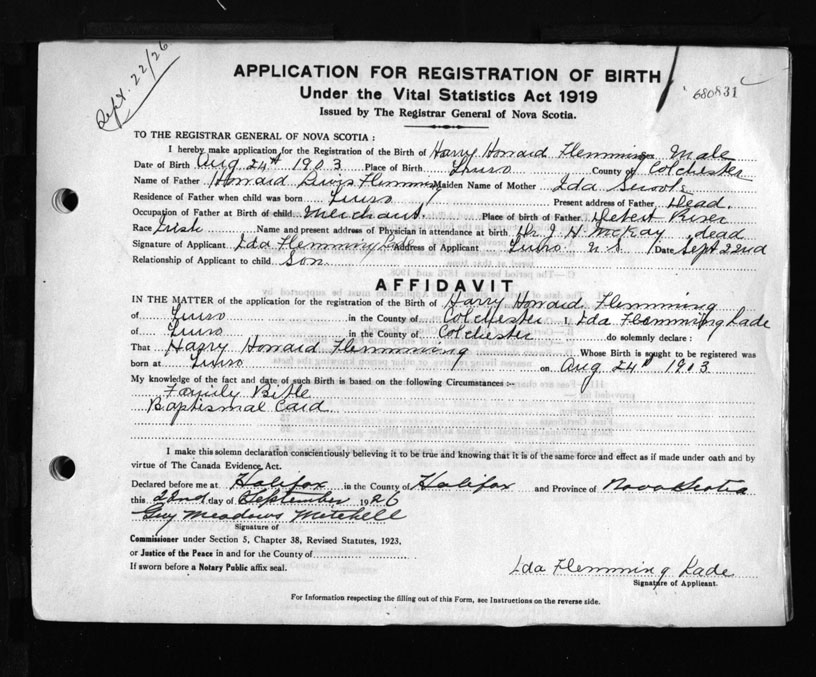 Sept. 22/26
APPLICATION FOR REGISTRATION OF BIRTH
Under the Vital Statistics Act 1919
680831
Issued by The Registrar General of Nova Scotia.
TO THE REGISTRAR GENERAL OF NOVA SCOTIA :
I hereby make application for the Registration of the Birth of Harry Howard Flemming Sex Male
Date of Birth Aug 24th 1903 Place of Birth Truro County of Colchester
Name of Father Howard Lewis Flemming Maiden Name of Mother Ida
Residence of Father when child was born Truro Present address of Father Dead.
Occupation of Father at Birth of child Merchant. Place of birth of Father Debert River
Race Irish Name and present address of Physician in attendance at birth Dr. J H McKay dead
Signature of Applicant Ida Flemming Address of Applicant Truro N S. Date Sept 22nd
Relationship of Applicant to child Son
AFFIDAVIT
IN THE MATTER of the application for the registration of the Birth of Harry Howard Flemming
of Truro in the County of Colchester I, Ida Flemming
of Truro in the County of Colchester do solemnly declare :
That Harry Howard Flemming Whose Birth is sought to be registered was
born at Truro on Aug 24th 1903
My knowledge of the fact and date of such Birth is based on the following Circumstances :-
Family Bible
Baptismal Card
I make this solemn declaration conscientiously believing it to be true and knowing that it is of the same force and effect as if made under oath and by
virtue of The Canada Evidence Act.
Declared before me at Halifax in the County of Halifax and Province of Nova Scotia
this 22nd day of September 1926
Guy Meadows Mitchell
Signature of
Commissioner under Section 5, Chapter 38, Revised Statutes, 1923,
or Justice of the Peace in and for the County of
If sworn before a Notary Public affix seal.
Ida Flemming
Signature of Applicant.
For Information respecting the filling out of this Form, see Instructions on the reverse side.